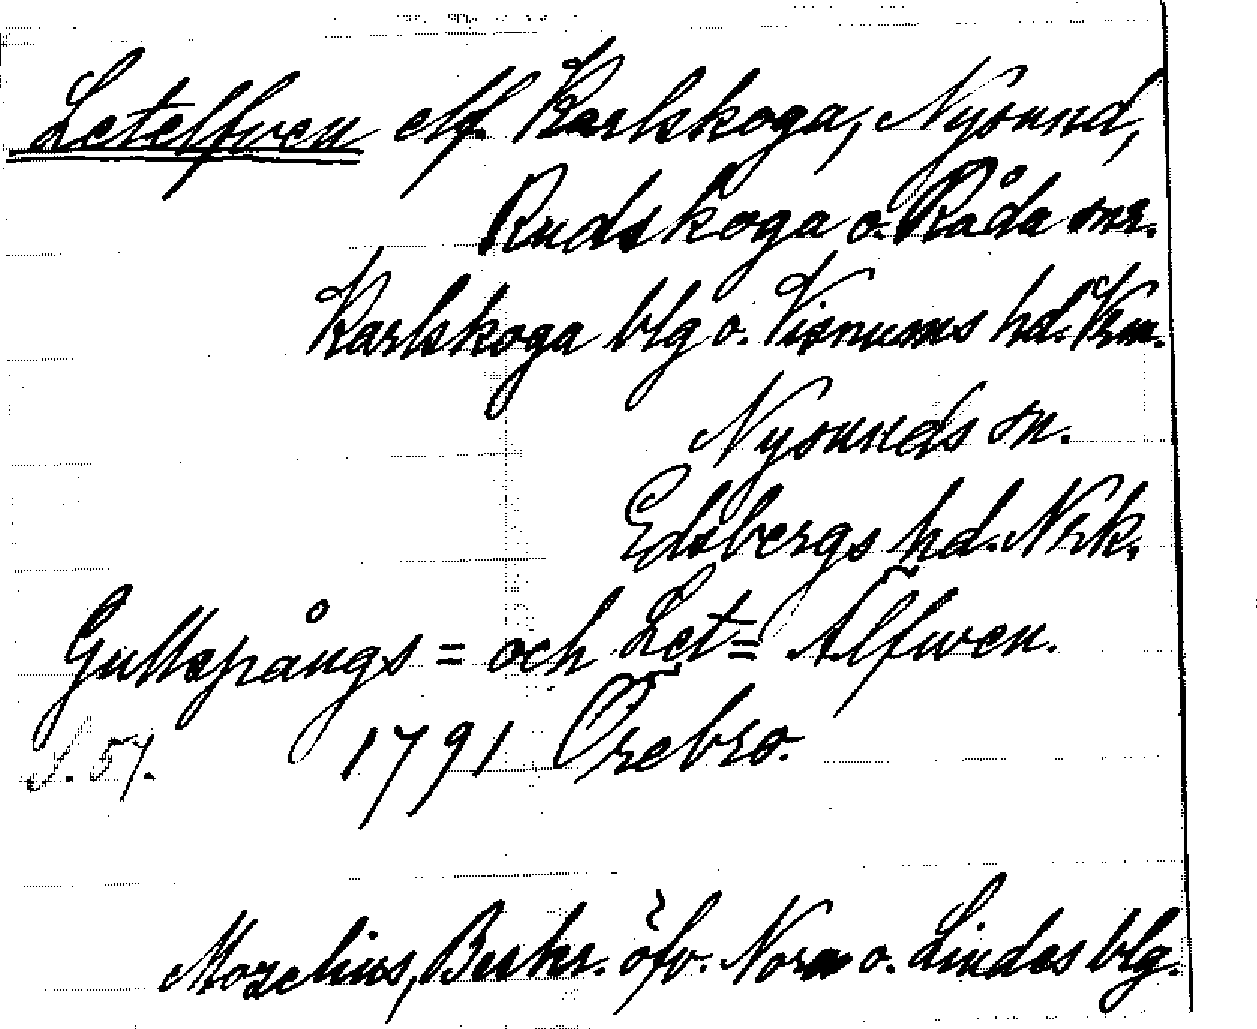 Letelfven elf. Karlskoga, Nysund,
Rudskoga o. Råda snr.
Karlskoga blg o. Visnums hd. Krm.
Nysunds sn.
Edsbergs hd. Nrk.
Gullspångs = och Let = Älfwen.
S. 57. 1791 Örebro.
Mozelius, Beskr. öfv. Nora o. Lindes blg.